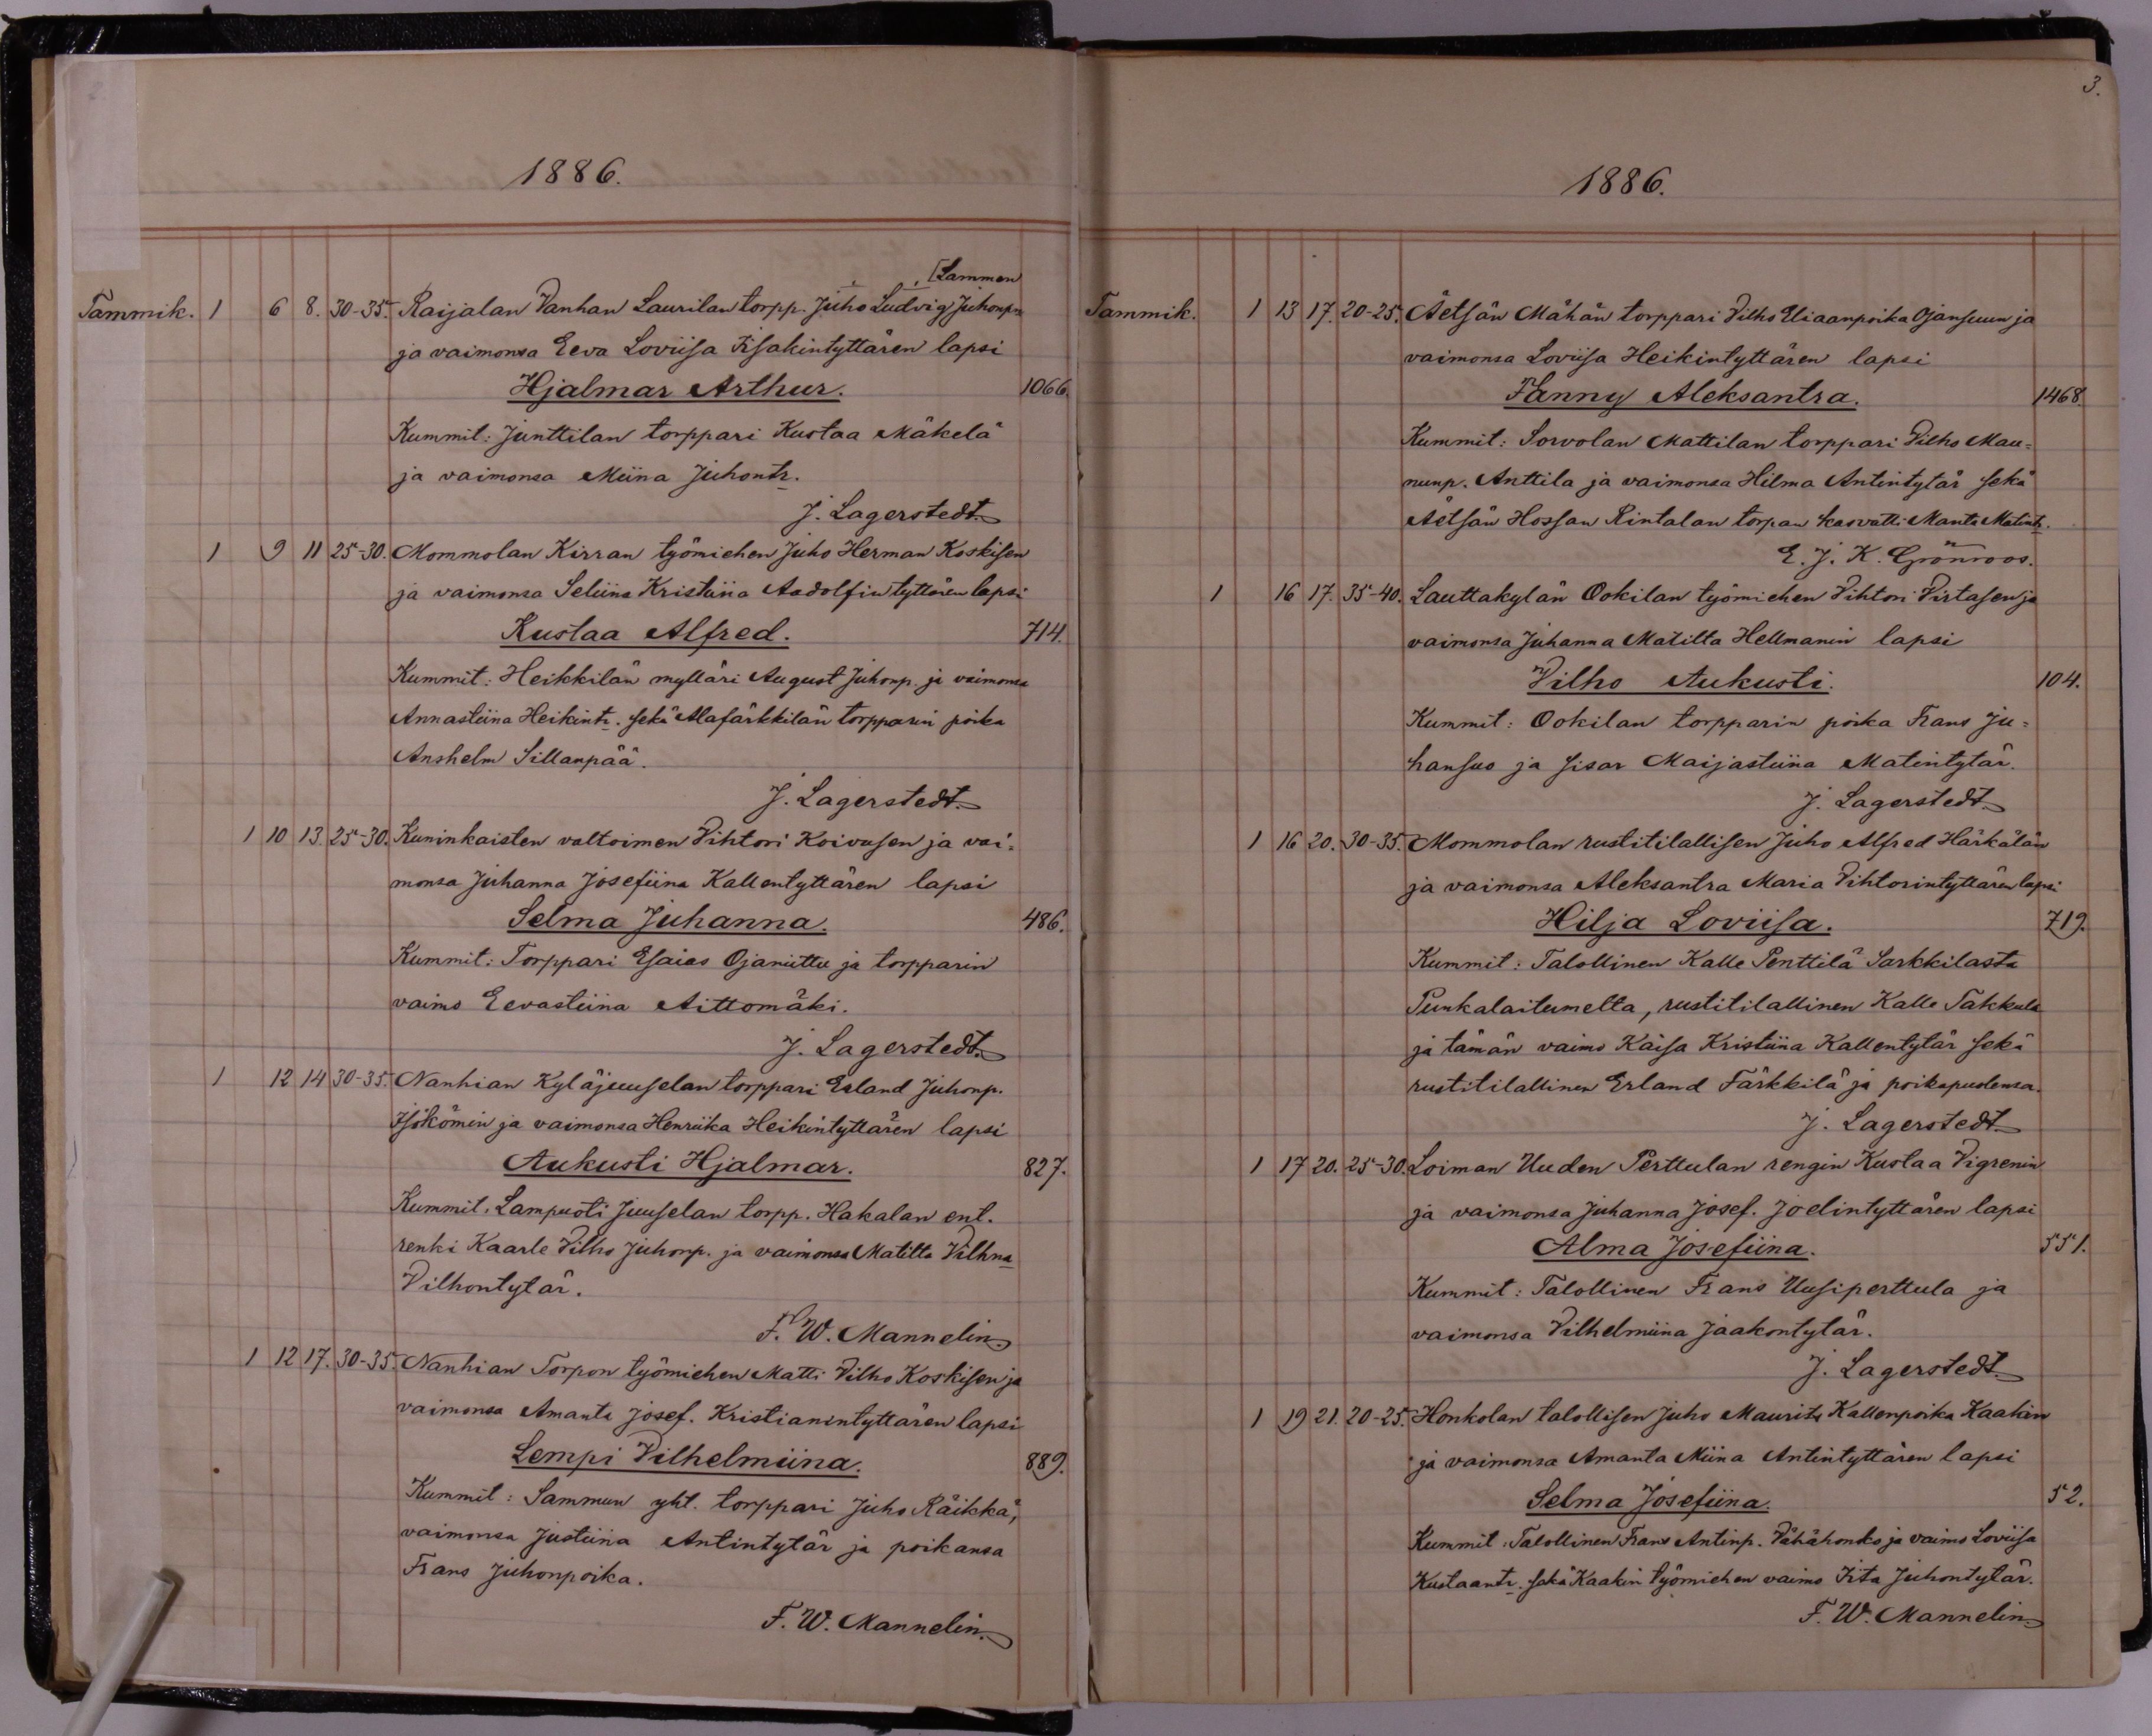 1886.
[Lammen
Tammik. 1 6 8. 30-35. Raijalan Vanhan Laurilan torpp. Juho Ludvig Juhonp.
ja vaimonsa Eeva Loviisa Iisakintyttären lapsi
Hjalmar Arthur. 1066.
Kummit: Junttilan torppari Kustaa Mäkelä
ja vaimonsa Miina Juhontr.
J. Lagerstedt.
1 9 11 25-30. Mommolan Kirran työmiehen Juho Herman Koskisen
ja vaimonsa Seliina Kristiina Aadolfintyttären lapsi
Kustaa Alfred. 714.
Kummit: Heikkilän mylläri August Juhonp. ja vaimonsa
Annastiina Heikintr. sekä Alafärkkilän torpparin poika
Anshelm Sillanpää.
J. Lagerstedt.
1 10 13. 25-30. Kuninkaisten valtoimen Vihtori Koivusen ja vai=
monsa Juhanna Josefiina Kallentyttären lapsi
Selma Juhanna. 486.
Kummit: Torppari Esaias Ojaniittu ja torpparin
vaimo Eevastiina Aittomäki.
J. Lagerstedt.
1 12 14 30-35. Nanhian Kyläjuuselan torppari Erland Juhonp.
Isökömin ja vaimonsa Henriika Heikintyttären lapsi
Aukusti Hjalmar. 827.
Kummit. Lampuoti Juuselan torpp. Hakalan ent.
renki Kaarle Vilho Juhonp. ja vaimonsa Matilta Vilhna
Vilhontytär.
F. W. Mannelin
1 12 17. 30-35. Nanhian Torpon työmiehen Matti Vilho Koskisen ja
vaimonsa Amanta Josef. Kristianintyttären lapsi
Lempi Vilhelmiina. 889.
Kummit: Sammun yht. torppari Juho Räikkä,
vaimonsa Justiina Antintytär ja poikansa
Frans Juhonpoika.
F. W. Mannelin.
3.
1886.
Tammik. 1 13 17. 20-25. Äetsän Mähän torppari Vilho Eliaanpoika Ojansuun ja
vaimonsa Loviisa Heikintyttären lapsi
Fanny Aleksantra. 1468.
Kummit: Sorvolan Mattilan torppari Vilho Mau=
nunp. Anttila ja vaimonsa Hilma Antintytär sekä
Äetsän Hossan Rintalan torpan kasvatti Manta Matintr.
E. J. K. Grönroos.
1 16 17. 35-40. Lauttakylän Ookilan työmiehen Vihtori Virtasen ja
vaimonsa Juhanna Matilta Hellmanin lapsi
Vilho Aukusti. 104.
Kummit: Ookilan torpparin poika Frans Ju=
hansuo ja sisar Maijastiina Matintytär.
J. Lagerstedt
1 16 20. 30-35. Mommolan rustitilallisen Juho Alfred Härkälän
ja vaimonsa Aleksantra Maria Vihtorintyttären lapsi
Hilja Loviisa. 719.
Kummit: Talollinen Kalle Penttilä Sarkkilasta
Punkalaitumelta, rustitilallinen Kalle Takkula
ja tämän vaimo Kaisa Kristiina Kallentytär sekä
rustitilallinen Erland Färkkilä ja poikapuolensa.
J. Lagerstedt
1 17 20. 25-30. Loiman Uuden Perttulan rengin Kustaa Vigrenin
ja vaimonsa Juhanna Josef. Joelintyttären lapsi
Alma Josefiina. 551.
Kummit: Talollinen Frans Uusiperttula ja
vaimonsa Vilhelmiina Jaakontytär.
J. Lagerstedt
1 19 21. 20-25. Honkolan talollisen Juho Maurits Kallenpoika Kaakin
ja vaimonsa Amanta Miina Antintyttären lapsi
Selma Josefiina. 52.
Kummit: Talollinen Frans Antinp. Vähähonko ja vaimo Loviisa
Kustaantr. sekä Kaakin työmiehen vaimo Iita Juhontytär.
F. W. Mannelin